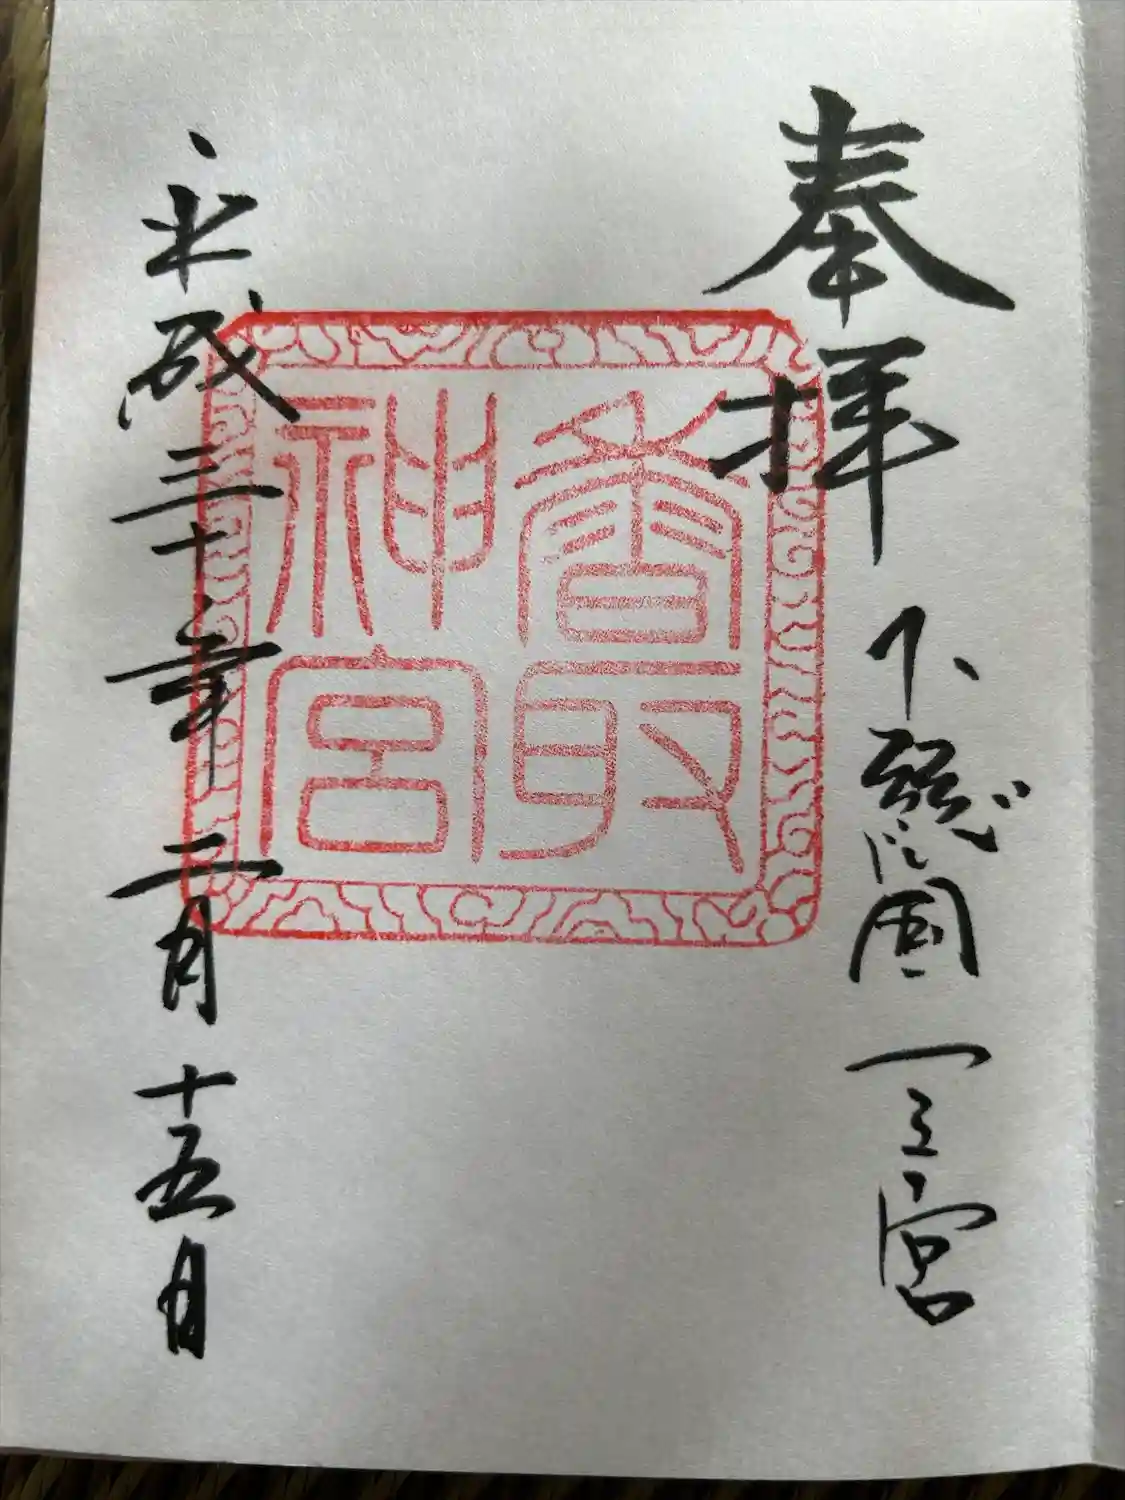 奉拝
下総国一之宮
香取
神宮
平成三十年二月十五日